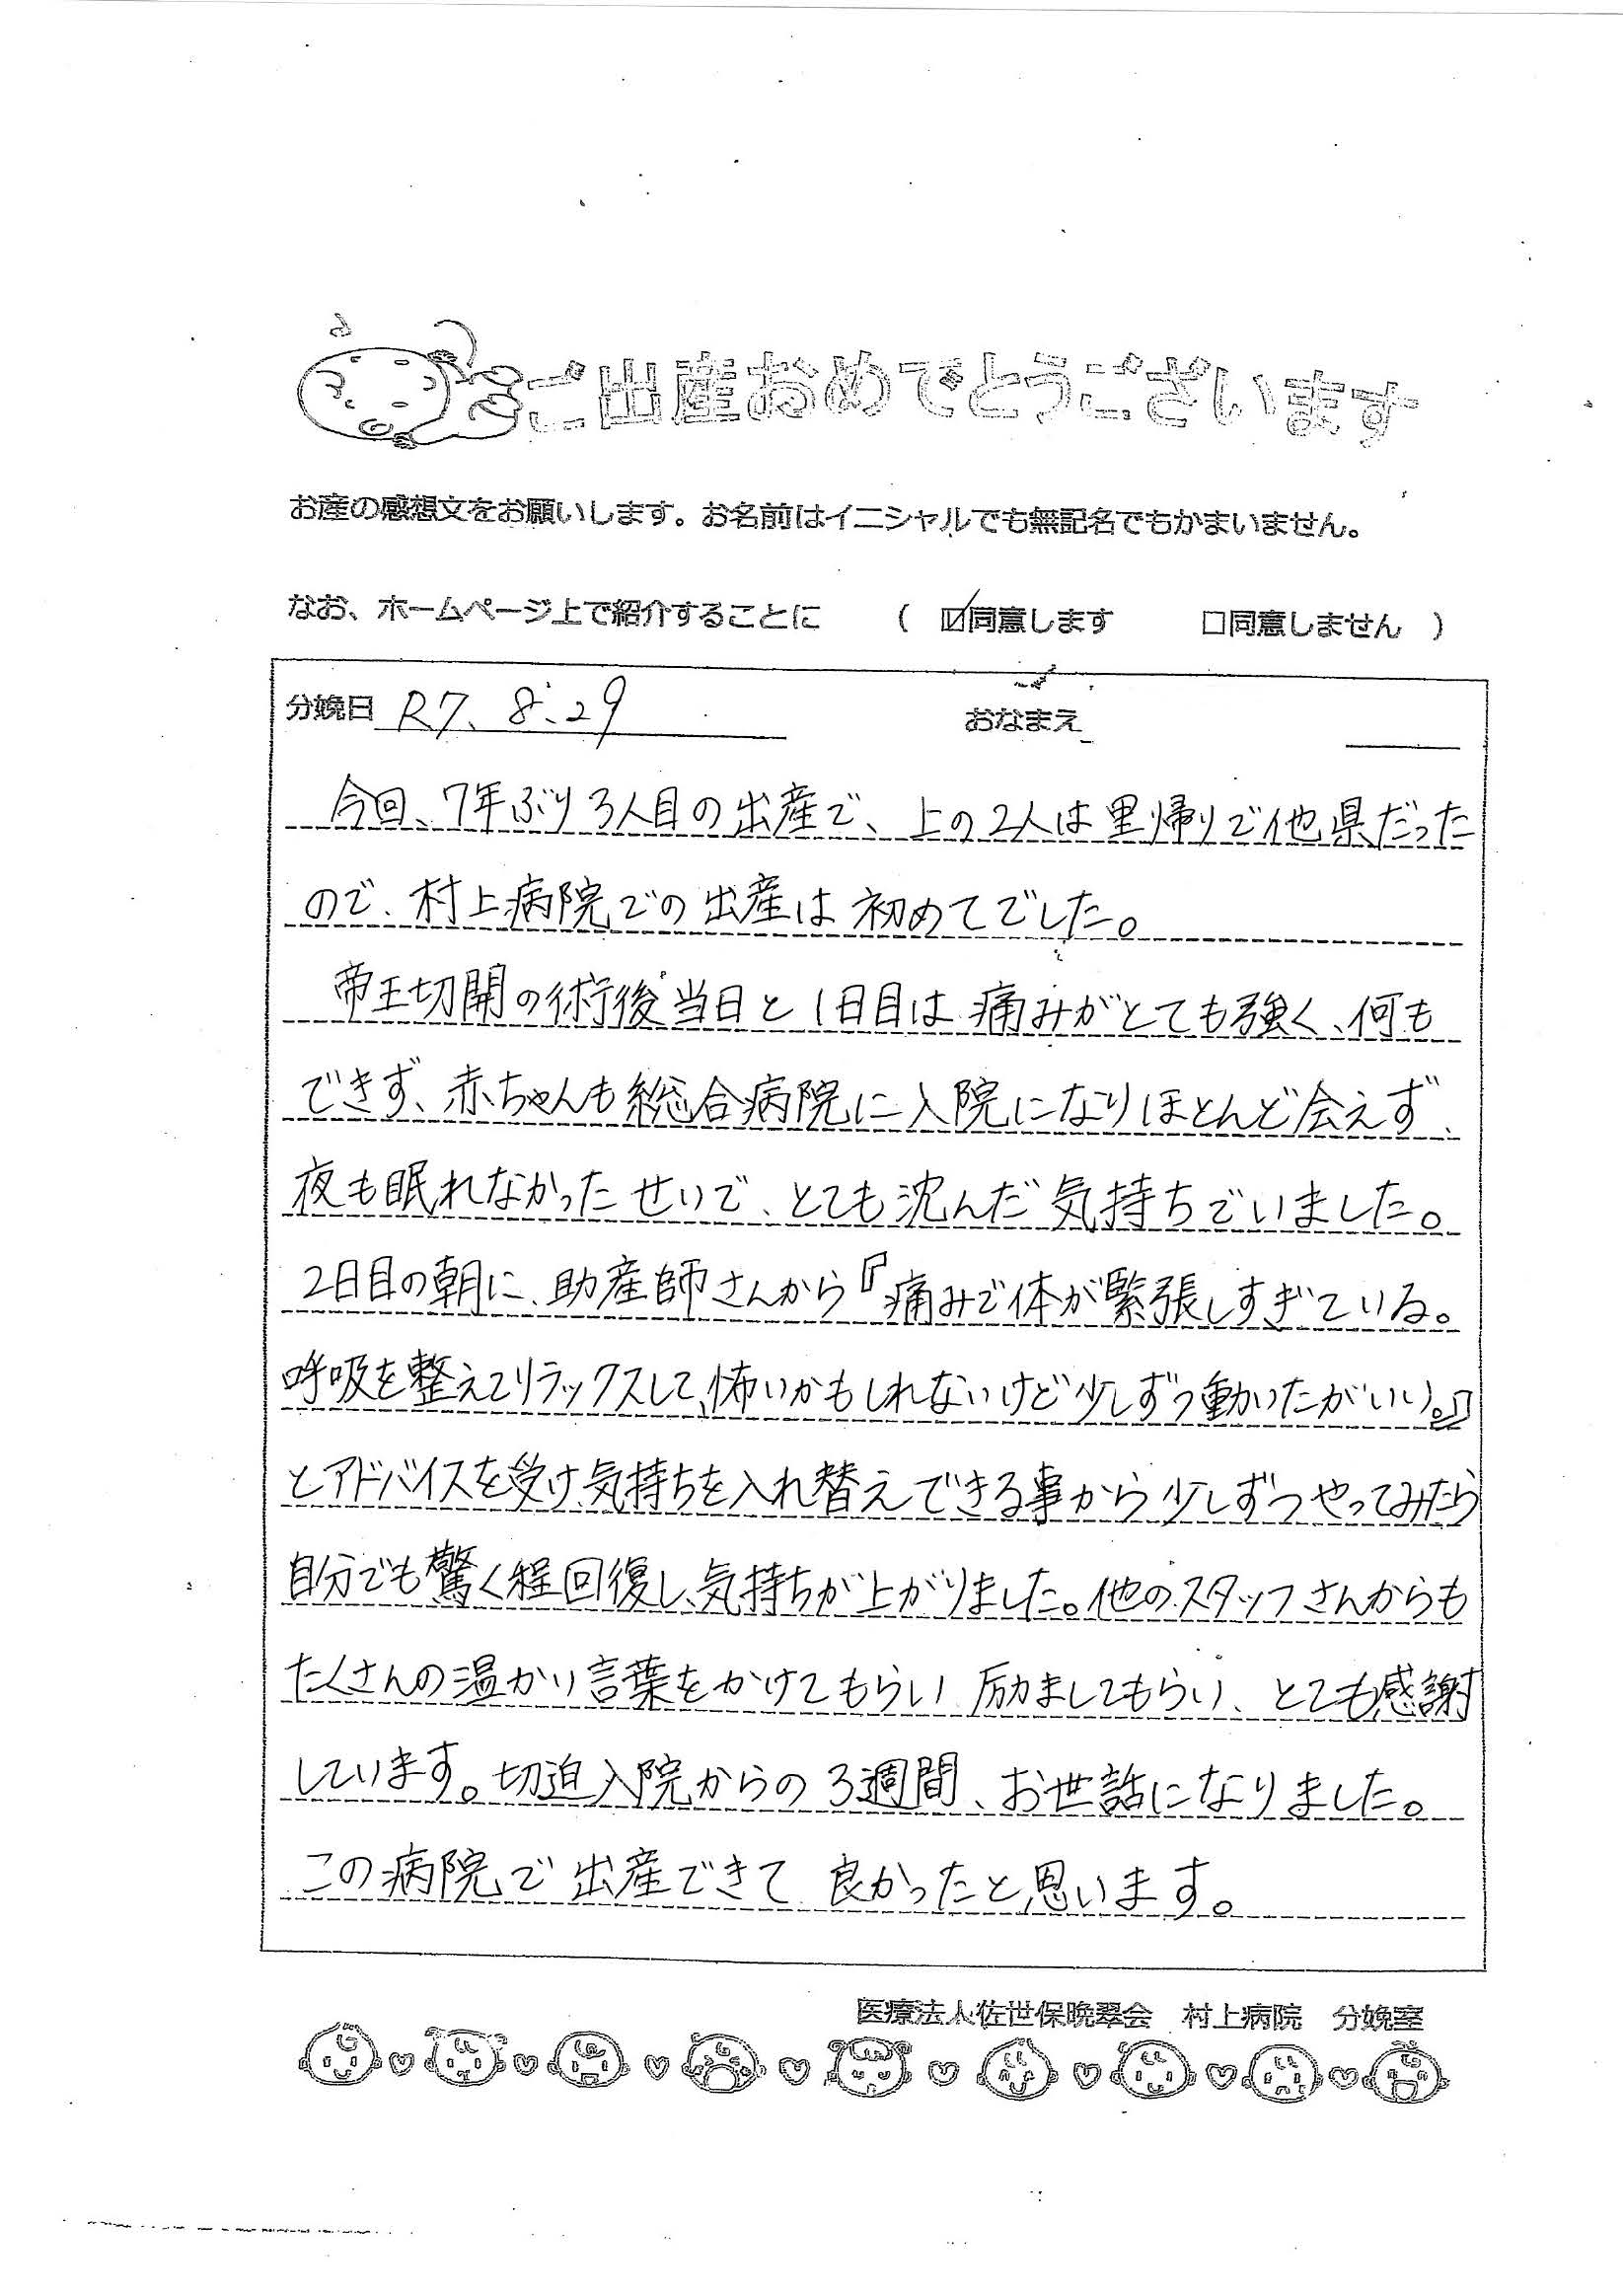 ご出産おめでとうございます
お産の感想文をお願いします。お名前はイニシャルでも無記名でもかまいません。
なお、ホームページ上で紹介することに （ ☑同意します □同意しません ）
分娩日 R7. 8. 29 おなまえ
今回、7年ぶり3人目の出産で、上の2人は里帰りで他県だった
ので、村上病院での出産は初めてでした。
帝王切開の術後当日と1日目は痛みがとても強く、何も
できず、赤ちゃんも総合病院に入院になりほとんど会えず、
夜も眠れなかったせいで、とても沈んだ気持ちでいました。
2日目の朝に、助産師さんから『痛みで体が緊張しすぎている。
呼吸を整えてリラックスして、怖いかもしれないけど少しずつ動いたがいい。』
とアドバイスを受け、気持ちを入れ替えできる事から少しずつやってみたら
自分でも驚く程回復し、気持ちが上がりました。他のスタッフさんからも
たくさんの温かい言葉をかけてもらい励ましてもらい、とても感謝
しています。切迫入院からの3週間、お世話になりました。
この病院で出産できて良かったと思います。
医療法人佐世保晩翠会 村上病院 分娩室